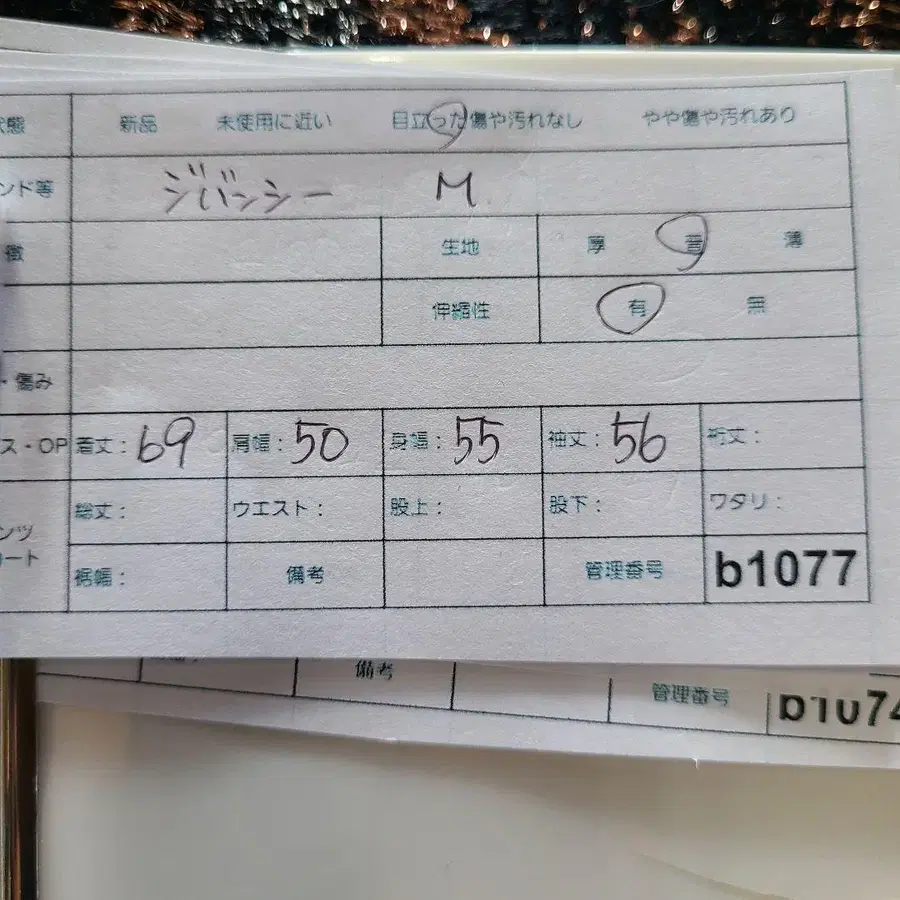 状態 新品 未使用に近い 目立った傷や汚れなし やや傷や汚れあり
ンド等 ジバンシー M
徴 生地 厚 普 薄
伸縮性 有 無
・傷み
ス・OP 着丈: 69 肩幅: 50 身幅: 55 袖丈: 56 裄丈:
ンツ 総丈: ウエスト: 股上: 股下: ワタリ:
ート 裾幅: 備考 管理番号 b1077
備考 管理番号 b1074